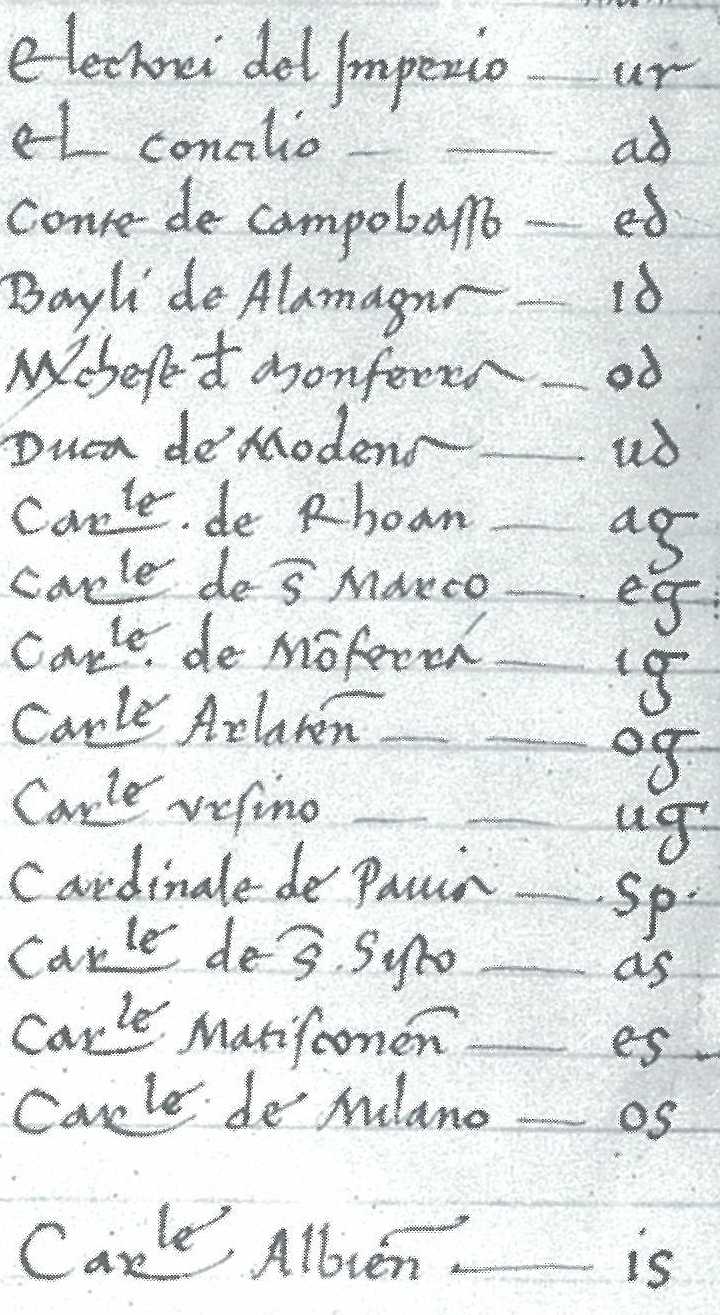 Electori del Imperio — ur
el concilio — — ad
Conte de campobasso — ed
Bayli de Alamagna — id
Mchese d Monferra — od
Duca de Modena — ud
Car^le. de Rhoan — ag
Car^le de S̃ Marco — eg
Car^le. de Mõferra — ig
Car^le Arlaten̄ — — og
Car^le vrsino — — ug
Cardinale de Pauia — .Sp.
Car^le de S̃. Systo — as
Car^le Matisconen̄ — es
Car^le de Milano — os
Car^le Albien̄ — is